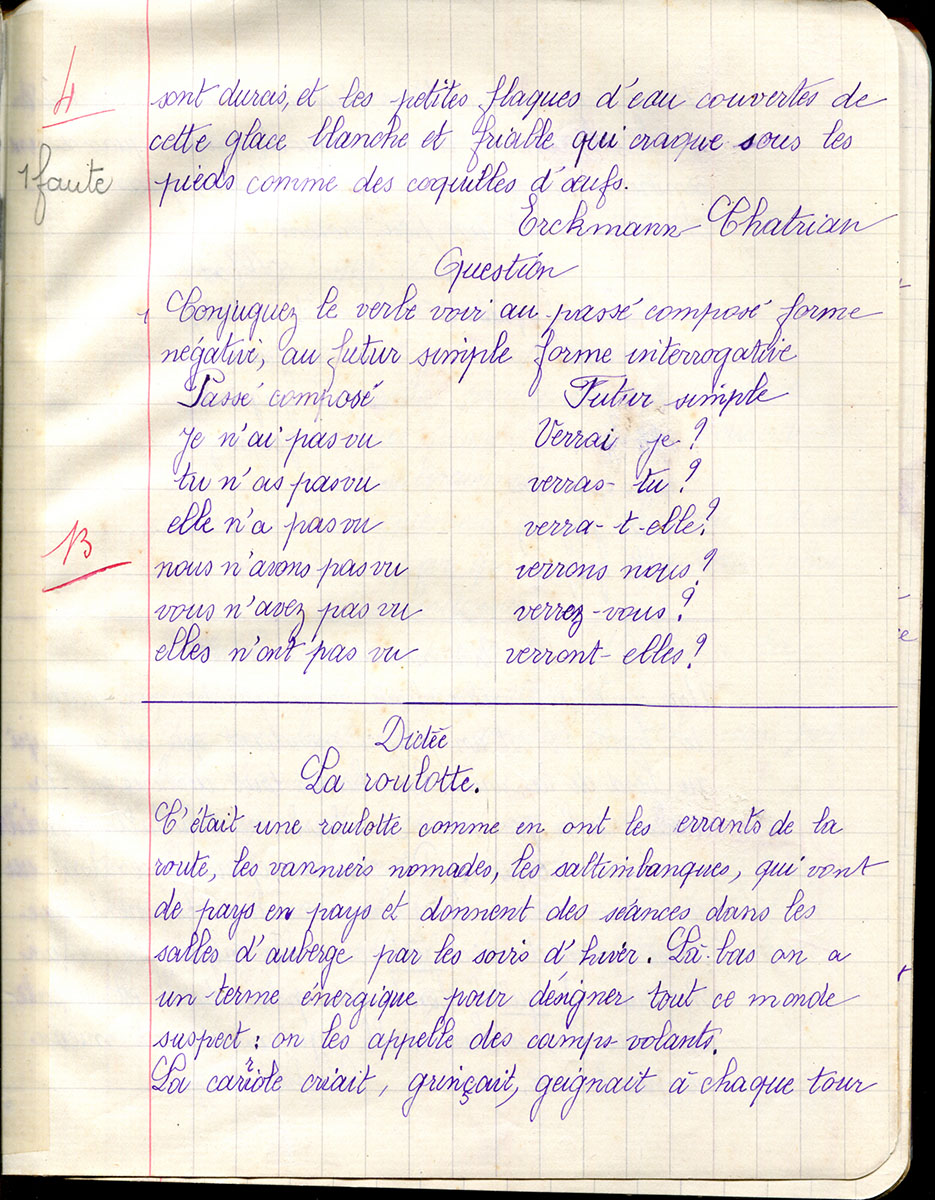 4
sont durcis, et les petites flaques d'eau couvertes de
cette glace blanche et friable qui craque sous les
1 faute
pieds comme des coquilles d'œufs.
Erckmann-Chatrian
Question
Conjuguez le verbe voir au passé composé forme
négative, au futur simple forme interrogative
Passé composé Futur simple
Je n'ai pas vu Verrai je ?
tu n'as pas vu verras-tu ?
elle n'a pas vu verra-t-elle ?
B
nous n'avons pas vu verrons nous ?
vous n'avez pas vu verrez-vous ?
elles n'ont pas vu verront-elles ?
Dictée
La roulotte.
C'était une roulotte comme en ont les errants de la
route, les vanniers nomades, les saltimbanques, qui vont
de pays en pays et donnent des séances dans les
salles d'auberge par les soirs d'hiver. Là-bas on a
un terme énergique pour désigner tout ce monde
suspect : on les appelle des camps-volants.
La carriole criait, grinçait, geignait à chaque tour